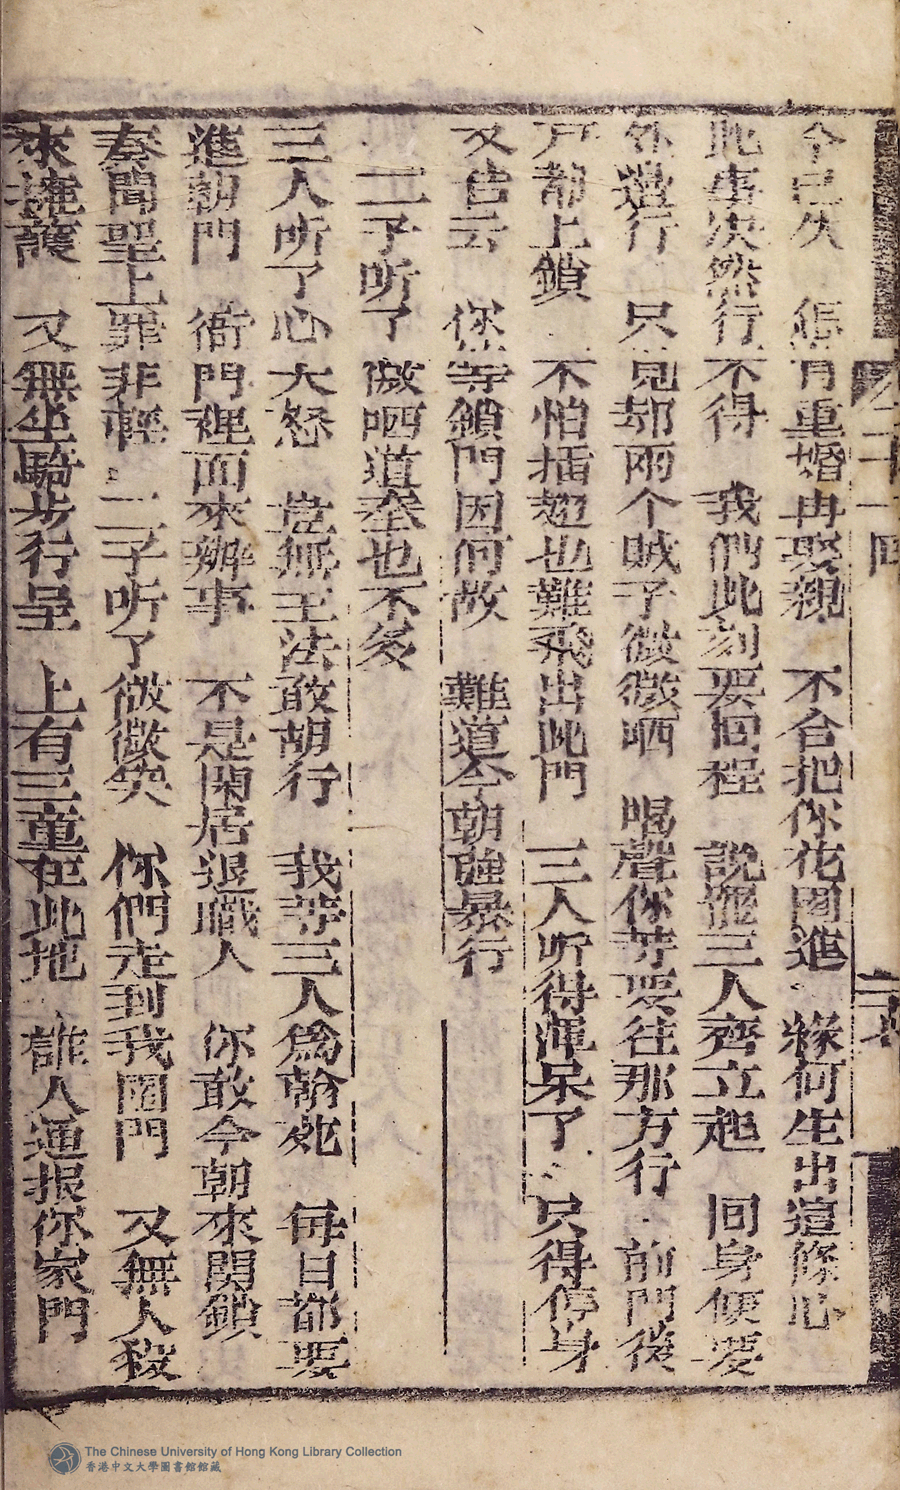 今已久　怎肯重婚冉娶親　不合把你花園進　緣何生出這條心
此事决然行不得　我們此刻要囬程　說罷三人齊立起　囬身便要
外邊行　只見却兩个賊子微微哂　喝聲你等要往那方行　前門後
戸都上鎖　不怕插翅也難飛出此門　三人听得渾呆了　只得停身
又告云　你等鎖門因何故　難道今朝強暴行
二子听了微哂道奎也不多
三人听了心大怒　豈無王法敢胡行　我等三人爲翰苑　每日都要
進朝門　衙門裡面來辦事　不是閑居退職人　你敢今朝來関鎖
奏聞聖上罪非輕　二子听了微微笑　你們走到我園門　又無人役
來擁護　又無坐騎步行呈　上有三童在此地　誰人通报你家門
二十一囬
The Chinese University of Hong Kong Library Collection
香港中文大學圖書館館藏